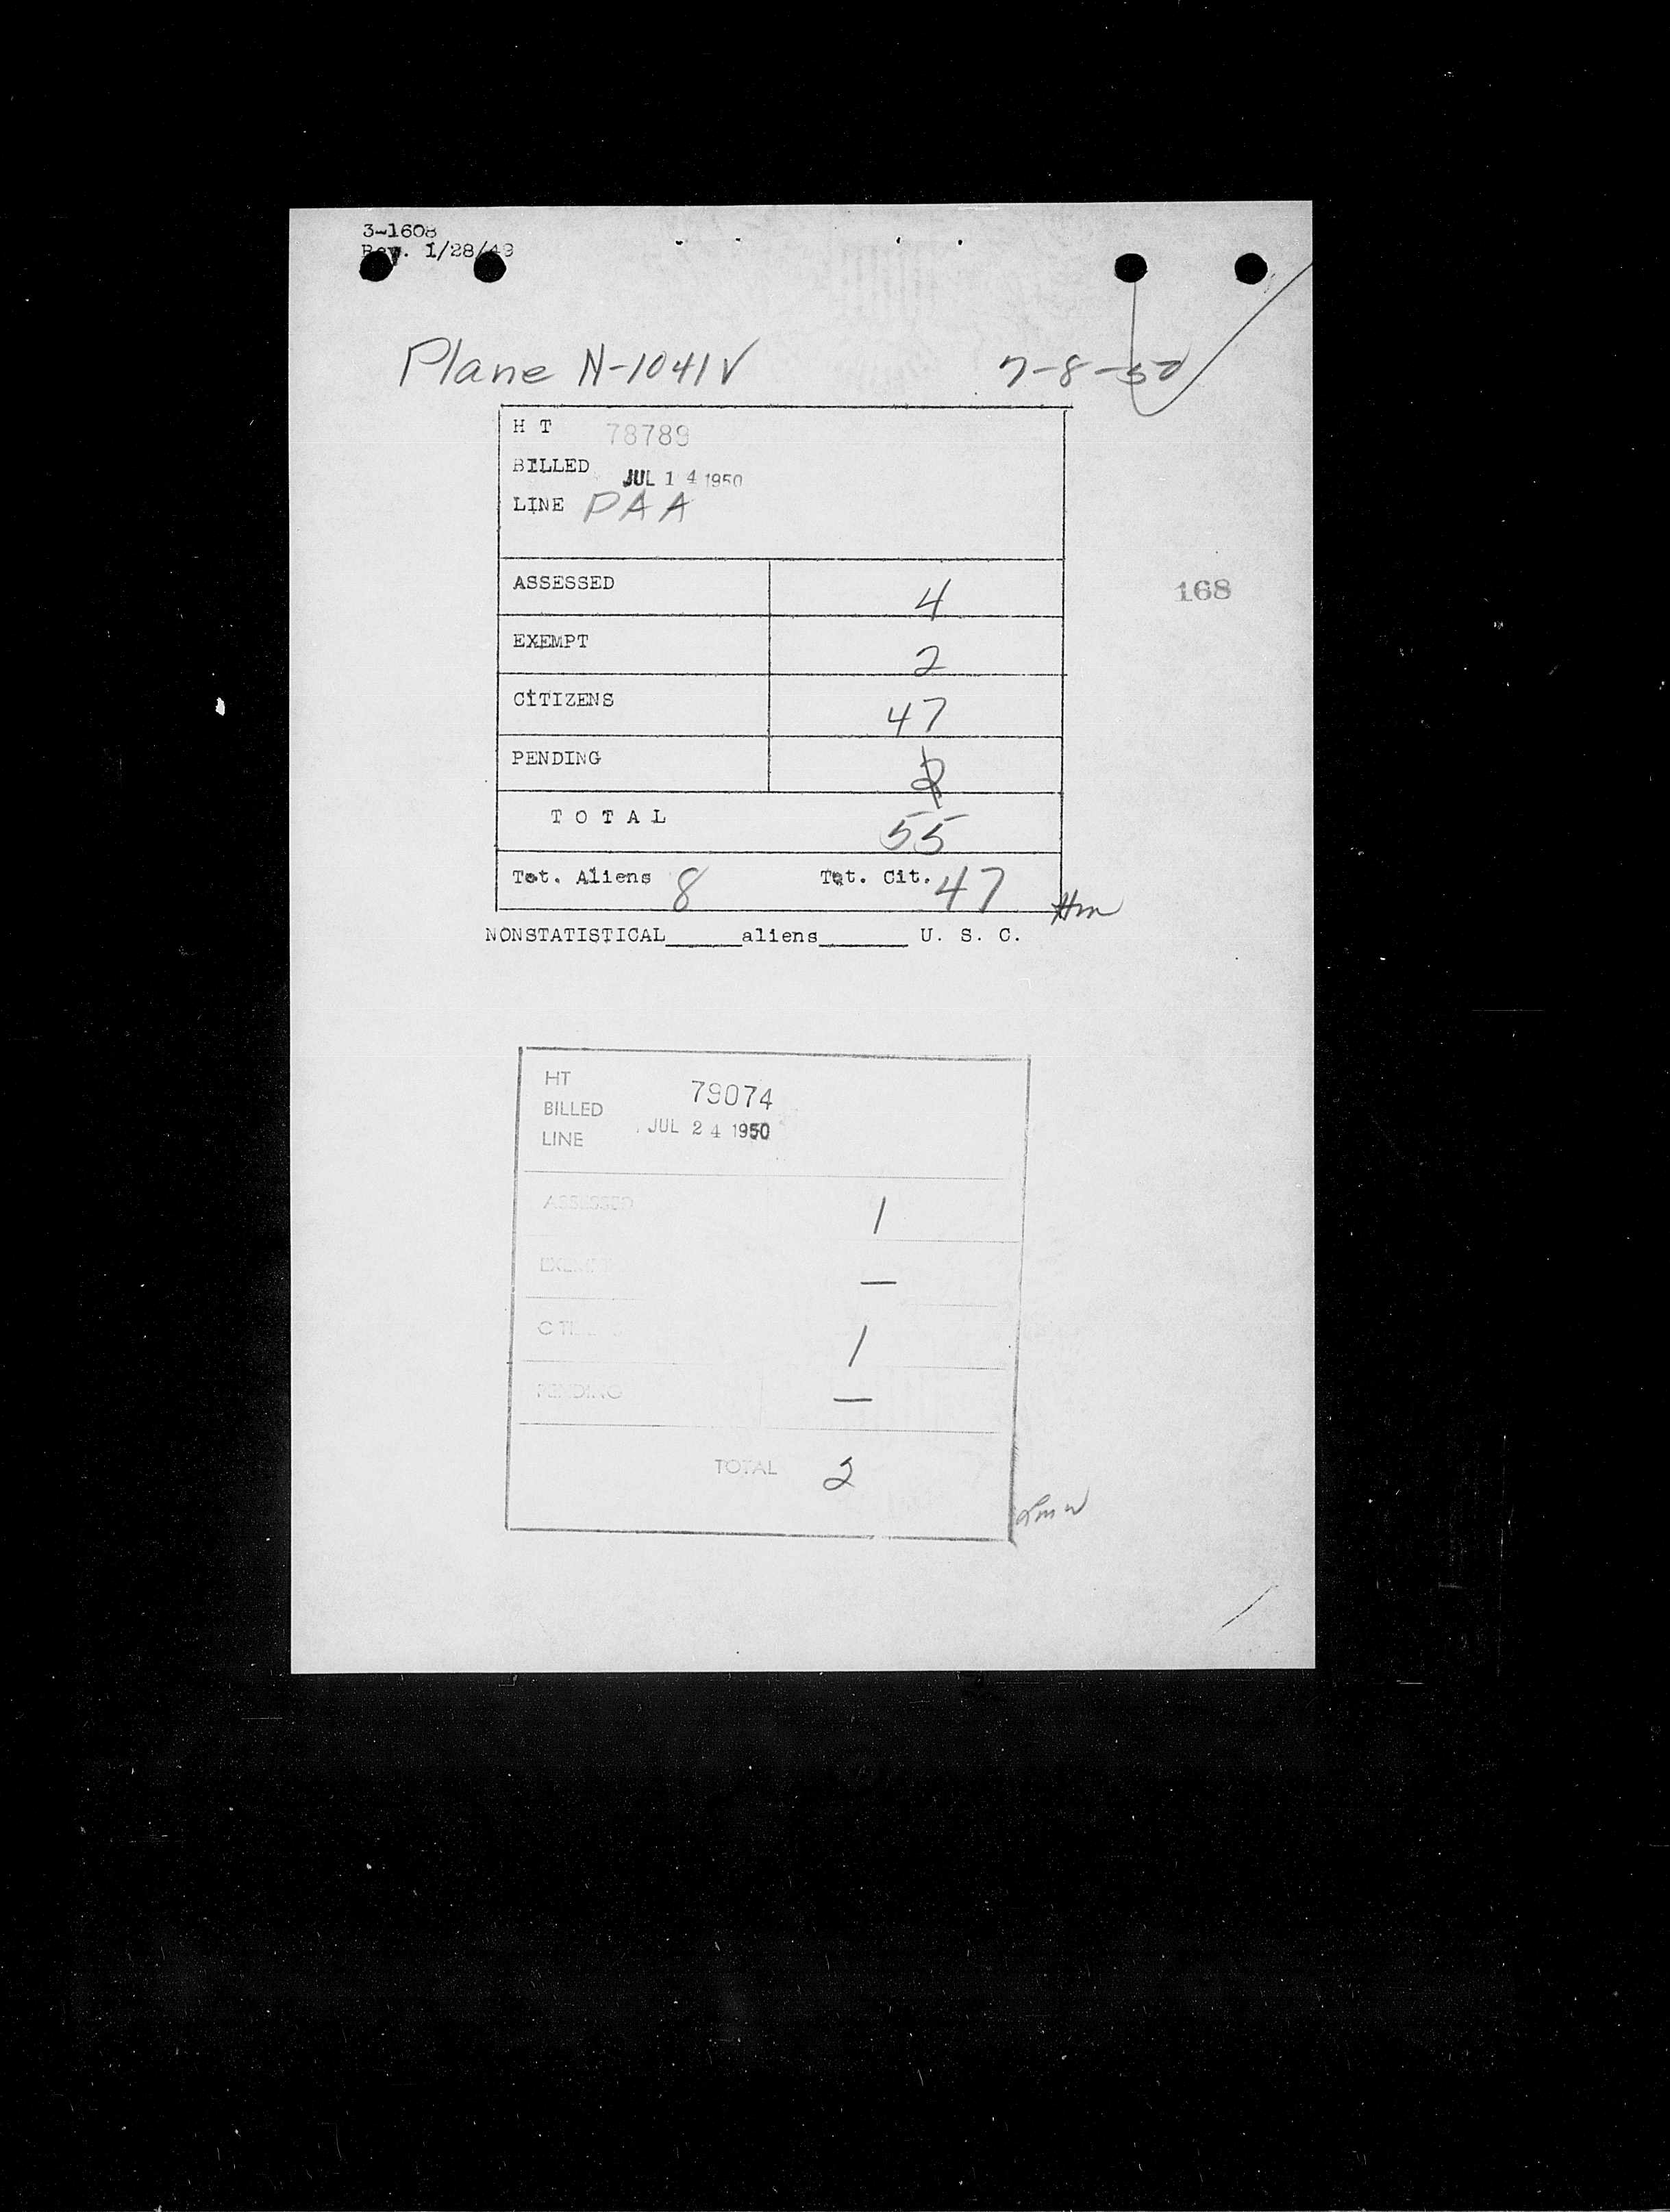 3-1608
Rev. 1/28/49
Plane N-1041V 7-8-50
H T 78789
BILLED JUL 14 1950
LINE PAA
168
ASSESSED 4
EXEMPT 2
CITIZENS 47
PENDING 2
T O T A L 55
Tot. Aliens 8 Tot. Cit. 47
NONSTATISTICAL______aliens_______ U. S. C.
HT 79074
BILLED
JUL 24 1950
LINE
ASSESSED 1
—
1
PENDING —
TOTAL 2